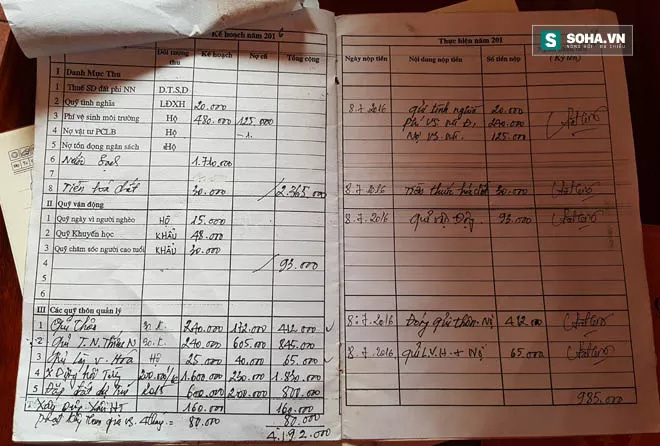 SOHA.VN
Kế hoạch năm 2016
Đối tượng thu Kế hoạch Nợ cũ Tổng cộng
I Danh Mục Thu
1 Thuế SD đất phi NN D.T.S.D
2 Quỹ tình nghĩa LĐXH 20.000
3 Phí vệ sinh môi trường Hộ 480.000 125.000
4 Nợ vật tư PCLB Hộ
5 Nợ tồn đọng ngân sách Hộ
6 1.710.000
7
8 Tiền hoá chất 30.000 2.365.000
II Quỹ vận động
1 Quỹ ngày vì người nghèo HỘ 15.000
2 Quỹ Khuyến học KHẨU 48.000
3 Quỹ chăm sóc người cao tuổi KHẨU 30.000
4 93.000
5
6
III Các quỹ thôn quản lý
1 Quỹ Thôn 240.000 172.000 412.000
2 Quỹ T.N. 240.000 605.000 845.000
3 Quỹ Làng V. Hoá Hộ 25.000 40.000 65.000
4 X Dựng 1.600.000 230.000 1.830.000
5 2015 600.000 200.000 800.000
Xây Dựng 160.000 160.000
80.000 80.000
4.192.000
Thực hiện năm 201
Ngày nộp tiền Nội dung nộp tiền Số tiền nộp (Ký tên)
8.7.2016 quỹ tình nghĩa 20.000
Phí VS. 240.000
Nợ VS. 125.000
8.7.2016 Tiền thuốc hoá chất 30.000
8.7.2016 quỹ vận Động 93.000
8.7.2016 Đóng quỹ thôn. Nợ 412.000
8.7.2016 quỹ L.V.H. + Nợ 65.000
985.000